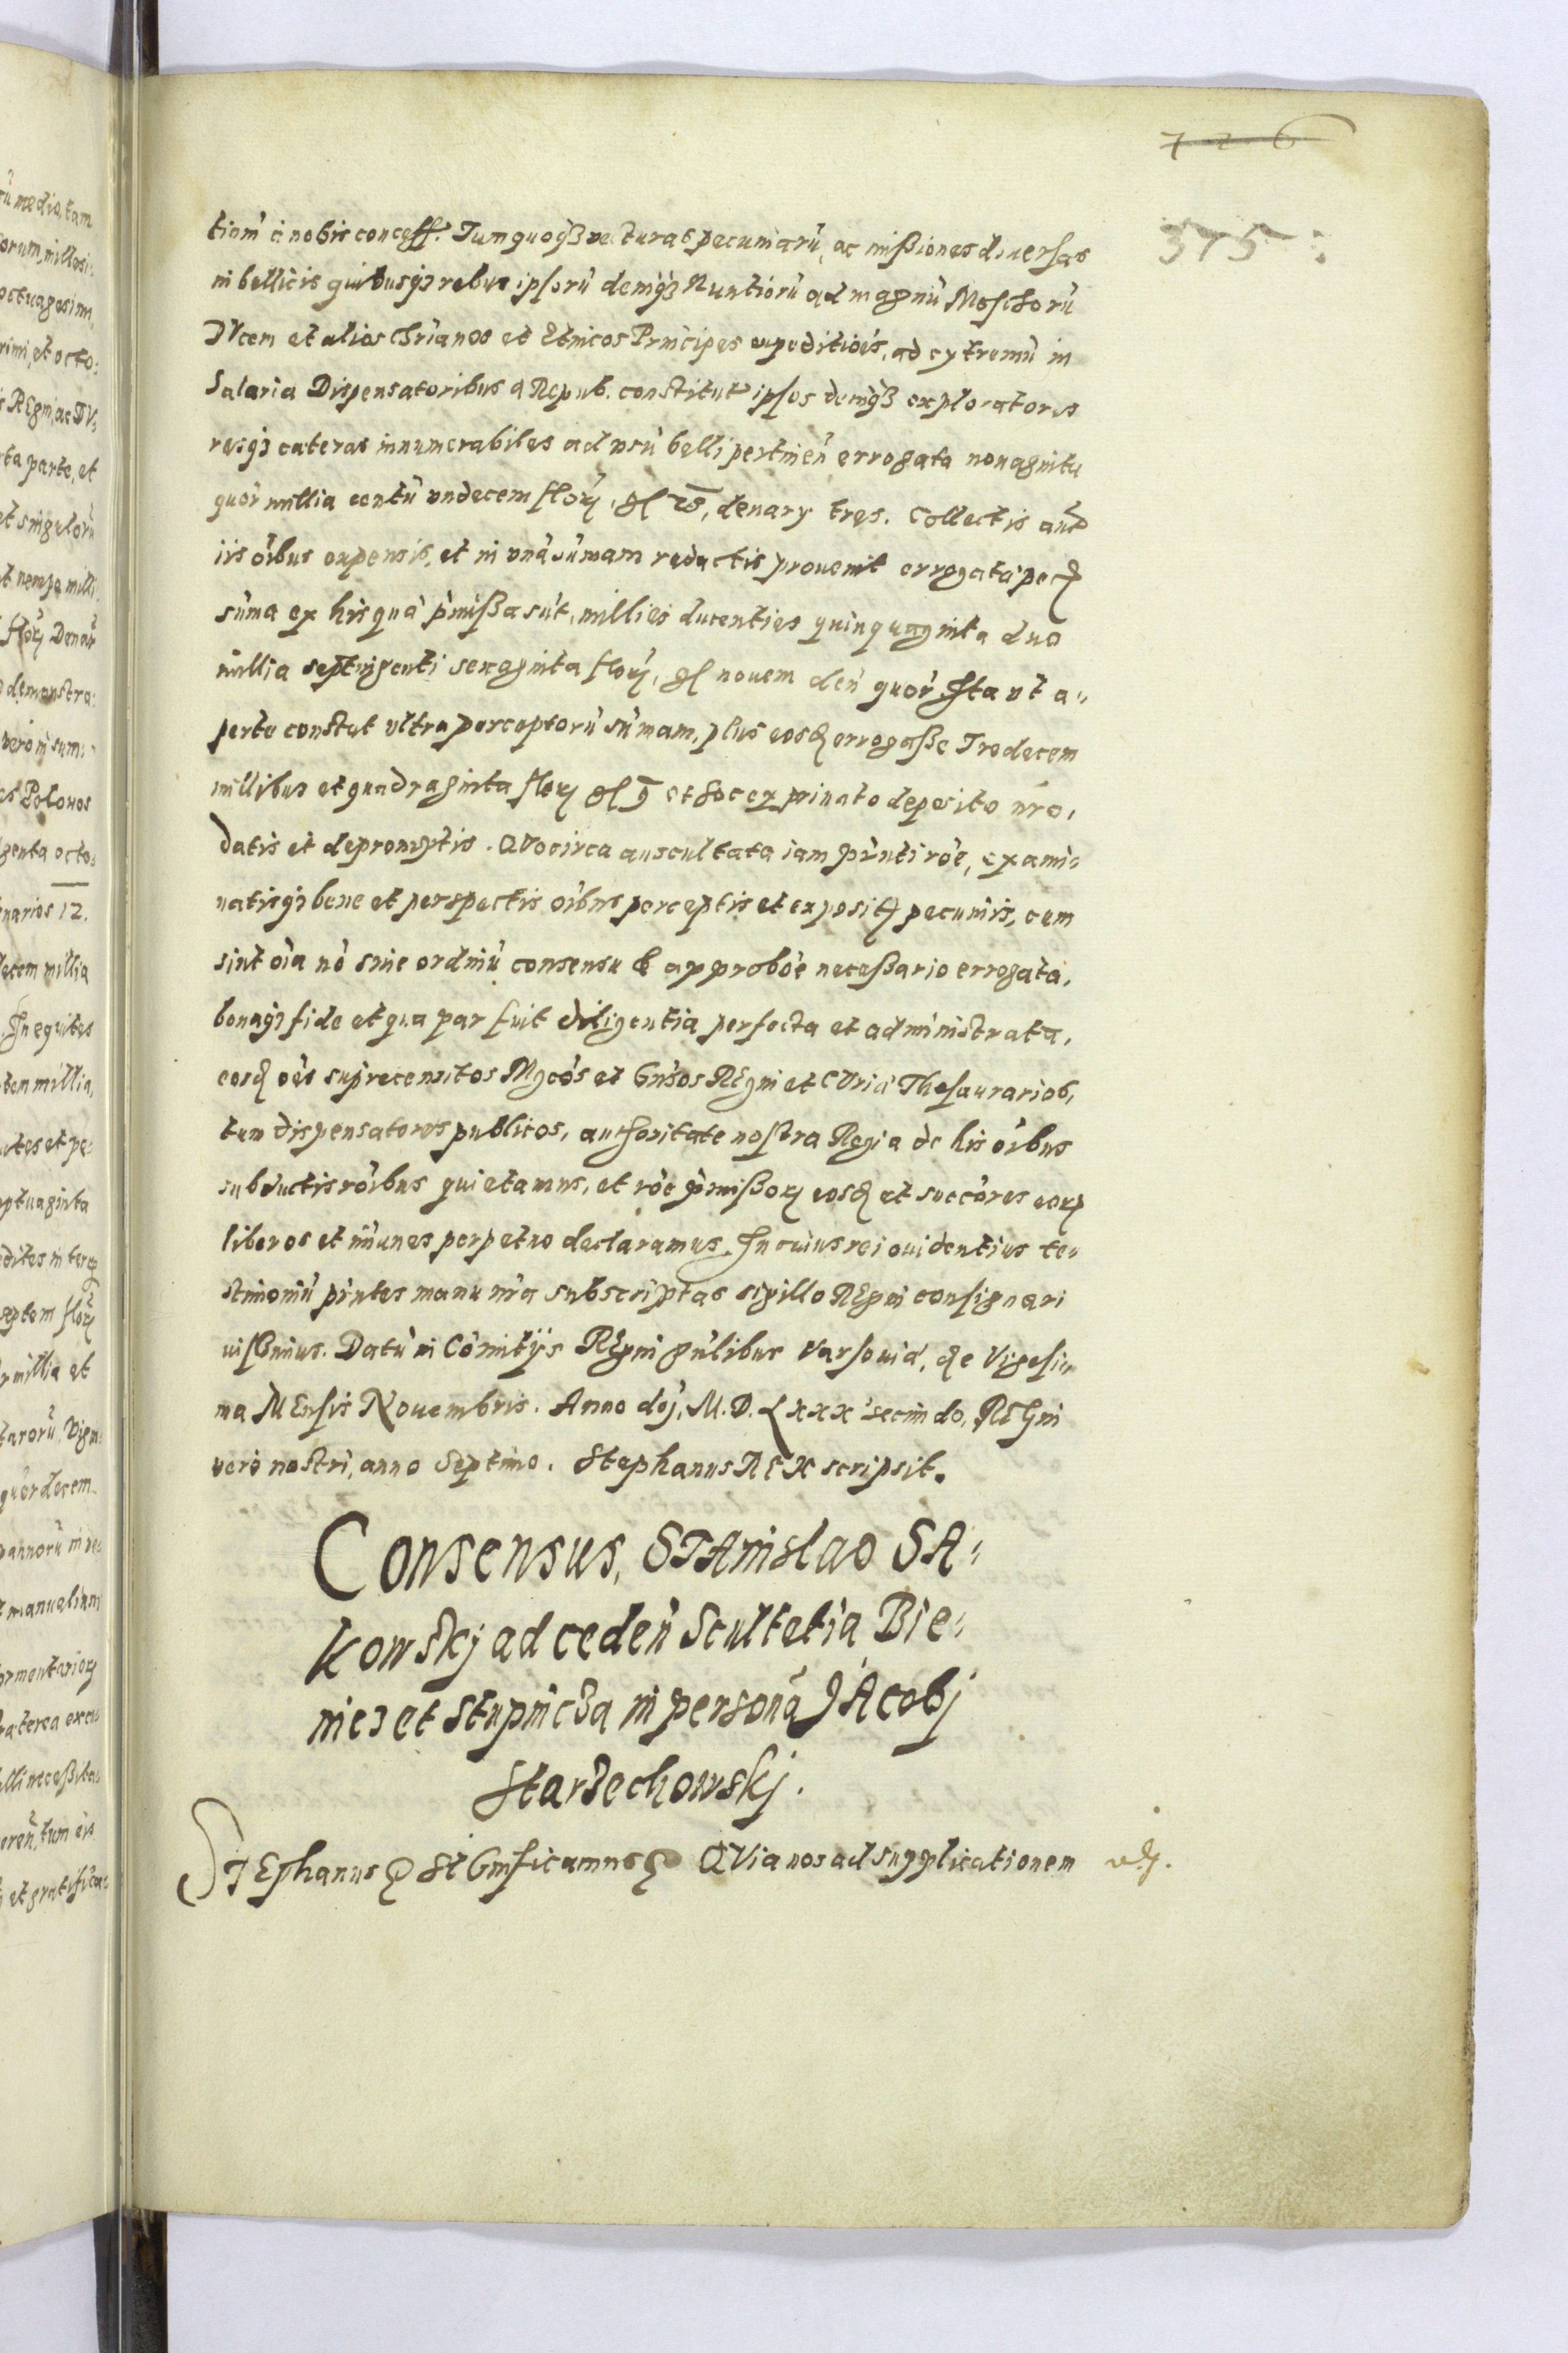 726
375
tiam à nobis concess. Tum quoqȝ vecturas pecuniarũ, ac missiones diuersas
in bellicis quibusqȝ rebus ipsorũ deniqȝ Nuntiorũ ad magnũ Moschorũ
DVcem et alios Chrianos et Etnicos Principes expeditiões, ad extremũ in
Salaria Dispensatoribus a Repub. constitut ipsos deniqȝ exploratores
resqȝ cæteras innumerabiles ad vsũ belli pertineñ errogata nonaginta
quor millia centũ vndecem flor, denary tres. Collectis aut
iis oibus expensis, et in vnã sũmam redactis prouenit errogatæ pec
sũma ex his quæ pmissa sũt, millies ducenties quinquaginta duo
millia septingenti sexaginta flor, novem deñ quor Ita vt a-
perte constat vltra perceptorũ sũmam, plus eosd errogasse Tredecem
millibus et quadraginta flor et hoc ex priuato deposito nro,
datis et depromptis. QVocirca auscultata iam pñti rõe, exami-
natisqȝ bene et perspectis oibus perceptis et exposit pecuniis, cem
sint oia nõ sine ordinũ consensu & approbõe necessario errogata,
bonaqȝ fide et qua par fuit diligentia perfecta et administrata,
eosd oẽs suprecensitos Mgcos et Gnsos REgni et CVriæ Thesaurarios,
tum dispensatores publicos, authoritate nostra Regia de his oibus
subductis rõibus quietamus, et rõe pmissor eosd et succores eor
liberos et im̃unes perpetuo declaramus. In cuius rei euidentius te-
stimoniũ pñtes manu nra subscriptas sigillo REgni consignari
iussimus. Datũ in Cõmitijs REgni gñlibus Varsouiæ, die Vigesi-
ma MEnsis Nouembris. Anno dnj, M. D. Lxxx secundo, REGni
vero nostri, anno Septimo. Stephanus REX scripsit.
Consensus, STAnislao SA-
kowskj ad cedeñ Scultetia Bie-
niec et Stupnicza in personã JAcobj
Starzechowskj.
STEphanus Significamus QVia nos ad supplicationem